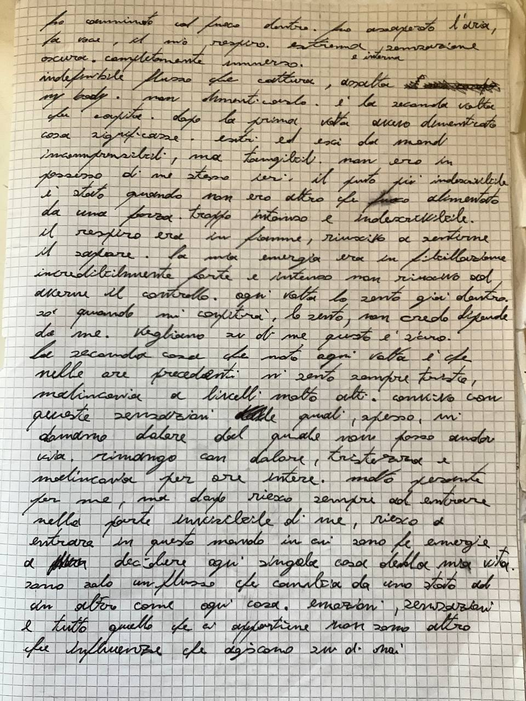 ho camminato col fuoco dentro. ho assaporato l'aria,
la voce, il mio respiro. estrema sensazione
oscura. completamente immerso.
e interna
indefinibile flusso che cattura, assalta
my body. non dimenticarlo. è la seconda volta
che capita. dopo la prima volta avevo dimenticato
cosa significasse. entri ed esci da mondi
incomprensibili, ma tangibili. non ero in
possesso di me stesso ieri. il punto più indescrivibile
è stato quando non ero altro che fuoco alimentato
da una forza troppo intensa e indescrivibile.
il respiro era in fiamme, riuscivo a sentirne
il sapore. la mia energia era in fibrillazione
incredibilmente forte e intensa non riuscivo ad
averne il controllo. ogni volta lo sento già dentro.
so quando mi capiterà, lo sento, non credo dipenda
da me. Vegliano su di me questo è sicuro.
la seconda cosa che noto ogni volta è che
nelle ore precedenti mi sento sempre triste,
malinconia a livelli molto alti. convivo con
queste sensazioni quali, spesso, mi
donano dolore dal quale non posso andar
via. rimango con dolore, tristezza e
malinconia per ore intere. molto pesante
per me, ma dopo riesco sempre ad entrare
nella parte invisibile di me, riesco a
entrare in questo mondo in cui sono le energie
a decidere ogni singola cosa della mia vita.
sono solo un flusso che cambia da uno stato ad
un altro come ogni cosa. emozioni, sensazioni
e tutto quello che ci appartiene non sono altro
che influenze che agiscono su di noi